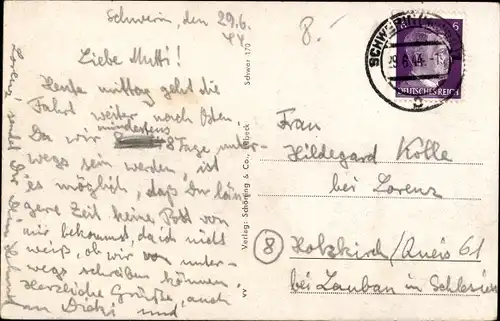 Schwerin, den 29.6.
44
8.-
Liebe Mutti!
Heute mittag geht die
Fahrt weiter nach Osten.
Da wir mindestens
8 Tage unter-
wegs sein werden ist
es möglich, daß Du län-
gere Zeit keine Post von
mir bekommst, da ich nicht
weiß, ob wir von unter-
wegs schreiben können.
Herzliche Grüße, auch
an Dicki und
Schwer 170
Verlag: Schöning & Co., Lübeck
SCHWERIN
29.6.44
6
DEUTSCHES REICH
Frau
Hildegard Kolle
bei Lorenz
(8) Holzkirch/Queis 61
bei Lauban in Schlesien